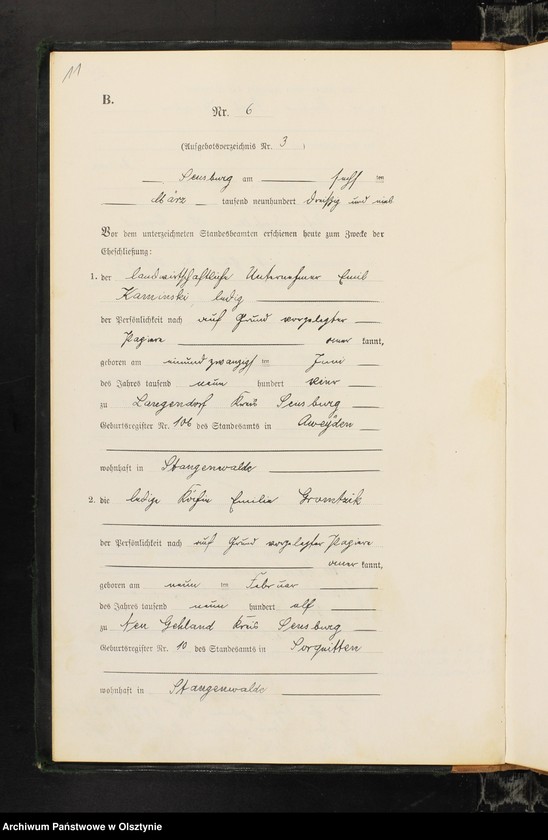 11
B.
Nr. 6
(Aufgebotsverzeichnis Nr. 3)
Sensburg am sechsten
März tausend neunhundert dreißig und
Vor dem unterzeichneten Standesbeamten erschienen heute zum Zwecke der
Eheschließung:
1. der landwirtschaftliche Unternehmer Emil
Kaminski, ledig
der Persönlichkeit nach auf Grund vorgelegter
Papiere aner kannt,
geboren am einundzwanzigsten Juni
des Jahres tausend neun hundert vier
zu Langendorf Kreis Sensburg
Geburtsregister Nr. 106 des Standesamts in Aweyden
wohnhaft in Stangenwalde
2. die ledige Köchin Emilie Gromtzik
der Persönlichkeit nach auf Grund vorgelegter Papiere
aner kannt,
geboren am neunten Februar
des Jahres tausend neun hundert elf
zu Neu Gehland Kreis Sensburg
Geburtsregister Nr. 10 des Standesamts in Sorquitten
wohnhaft in Stangenwalde
Archiwum Państwowe w Olsztynie